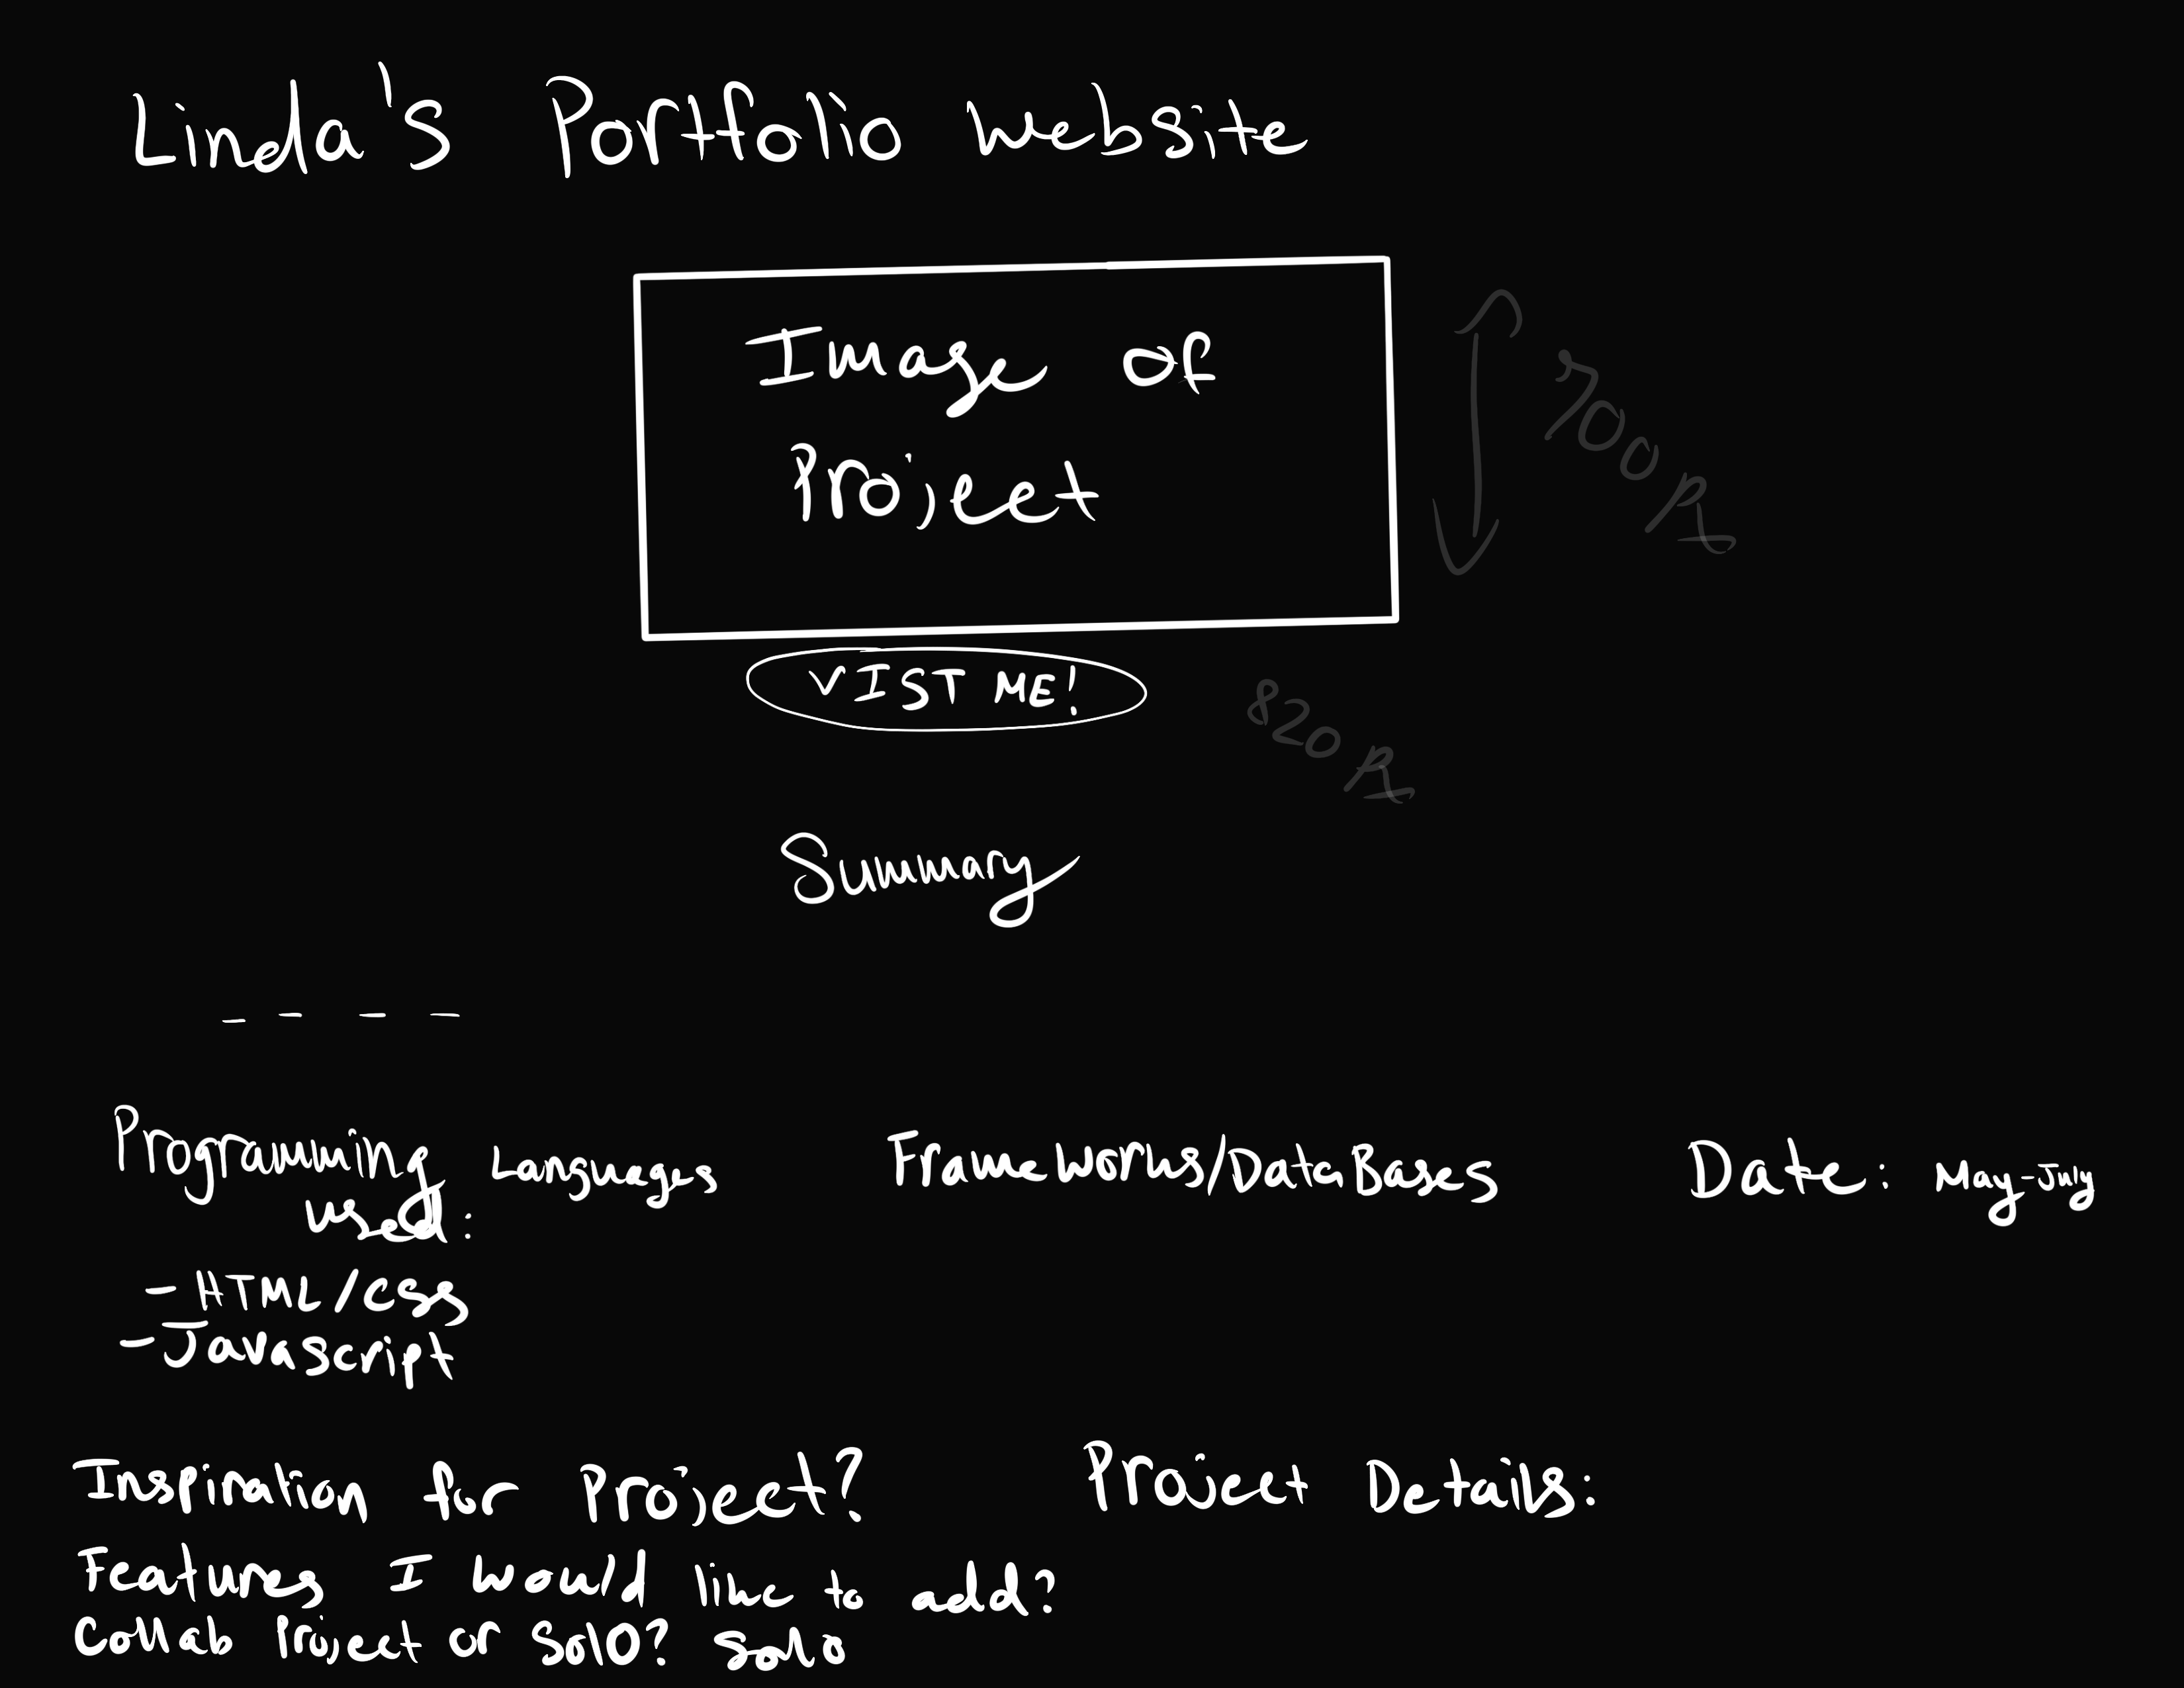 Linda's Portfolio Website
Image of
Project
700 px
VIST ME!
820 px
Summary
- - - -
Programming Languages
used:
Frameworks/DataBases
Date: May-July
- HTML/CSS
- Javascript
Inspiration for Project?
Project Details:
Features I would like to add?
Collab Project or solo? Solo